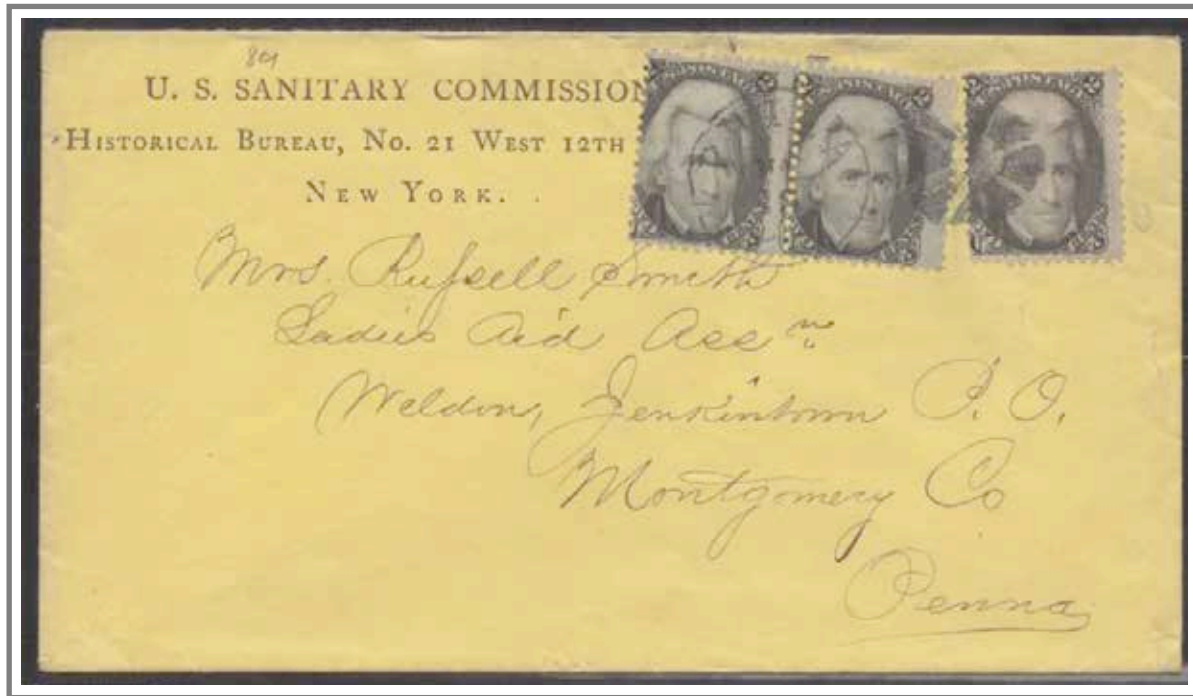 801
U. S. SANITARY COMMISSION
HISTORICAL BUREAU, NO. 21 WEST 12TH
NEW YORK.
Mrs. Russell Smith
Ladies Aid Assn
Weldon, Jenkintown P. O.
Montgomery Co
Penna